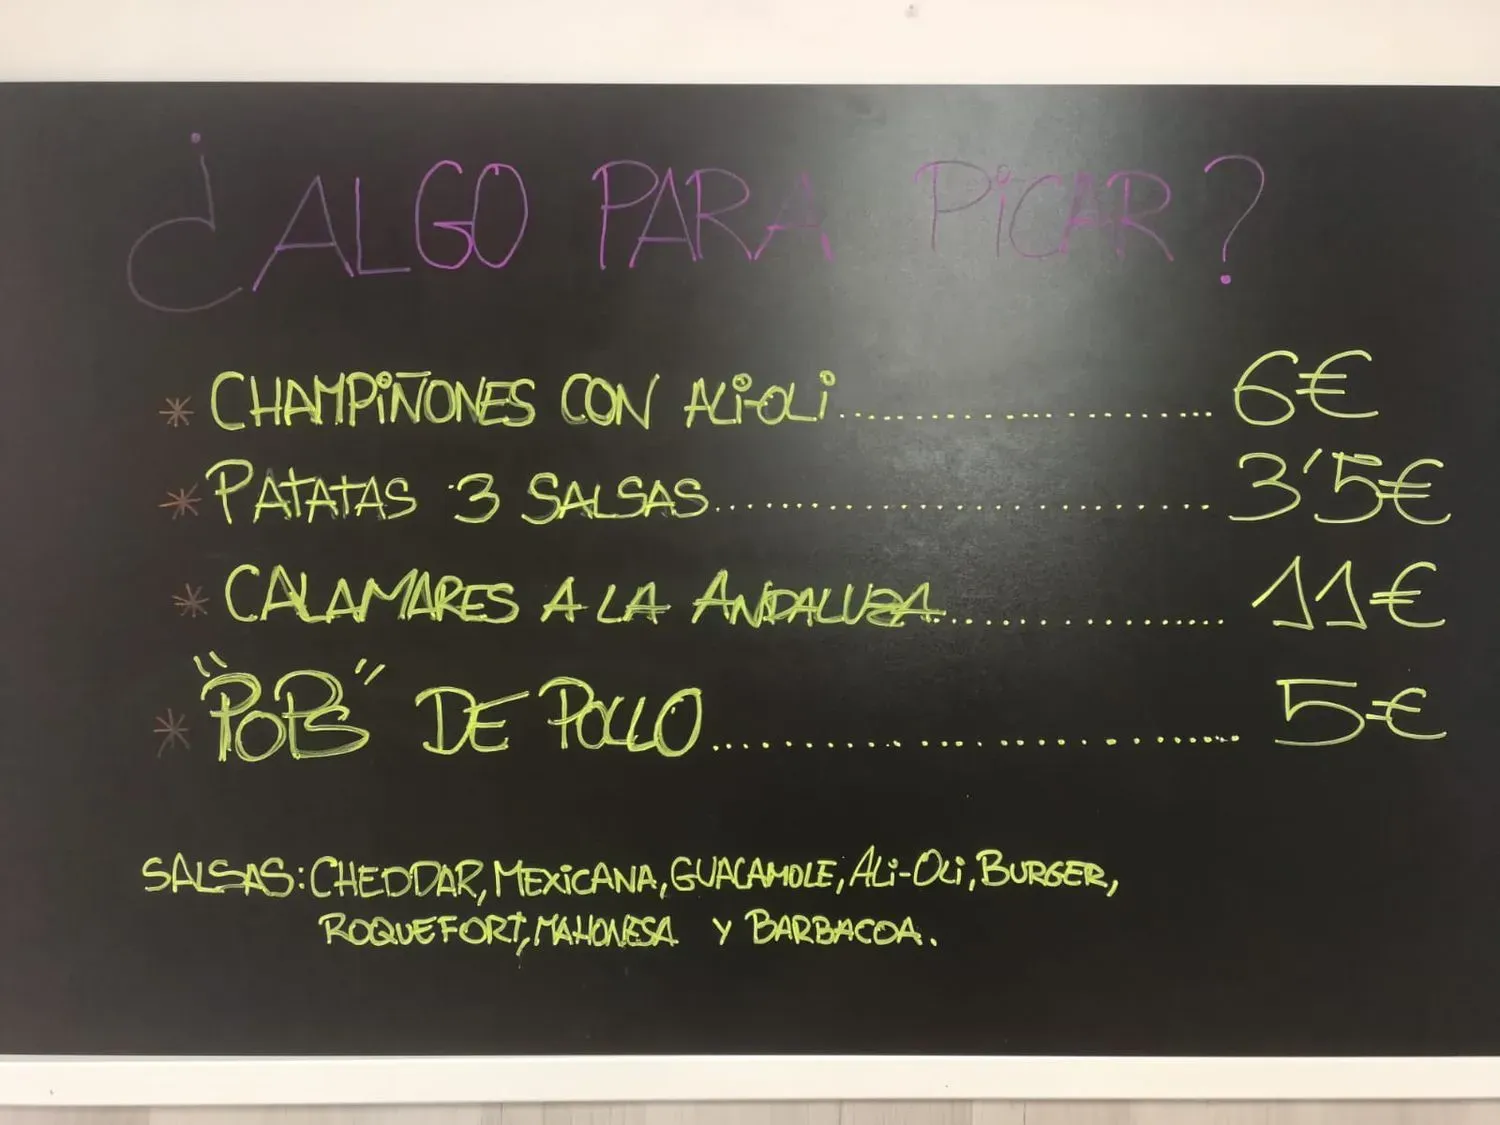 ¿ALGO PARA PiCAR?
* CHAMPiÑONES CON ALi-OLi........................ 6€
* PATATAS 3 SALSAS.............................. 3'5€
* CALAMARES A LA ANDALUZA................... 11€
* "POPS" DE POLLO.............................. 5€
SALSAS: CHEDDAR, MEXiCANA, GUACAMOLE, ALi-OLi, BURGER,
ROQUEFORT, MAHONESA Y BARBACOA.